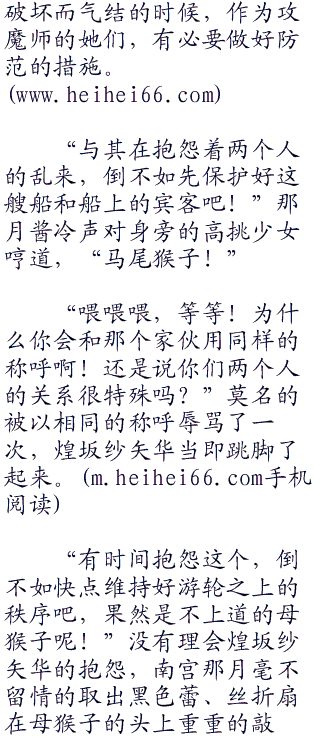 破坏而气结的时候，作为攻
魔师的她们，有必要做好防
范的措施。
(www.heihei66.com)
“与其在抱怨着两个人
的乱来，倒不如先保护好这
艘船和船上的宾客吧！”那
月酱冷声对身旁的高挑少女
哼道，“马尾猴子！”
“喂喂喂，等等！为什
么你会和那个家伙用同样的
称呼啊！还是说你们两个人
的关系很特殊吗？”莫名的
被以相同的称呼辱骂了一
次，煌坂纱矢华当即跳脚了
起来。(m.heihei66.com手机
阅读)
“有时间抱怨这个，倒
不如快点维持好游轮之上的
秩序吧，果然是不上道的母
猴子呢！”没有理会煌坂纱
矢华的抱怨，南宫那月毫不
留情的取出黑色蕾、丝折扇
在母猴子的头上重重的敲